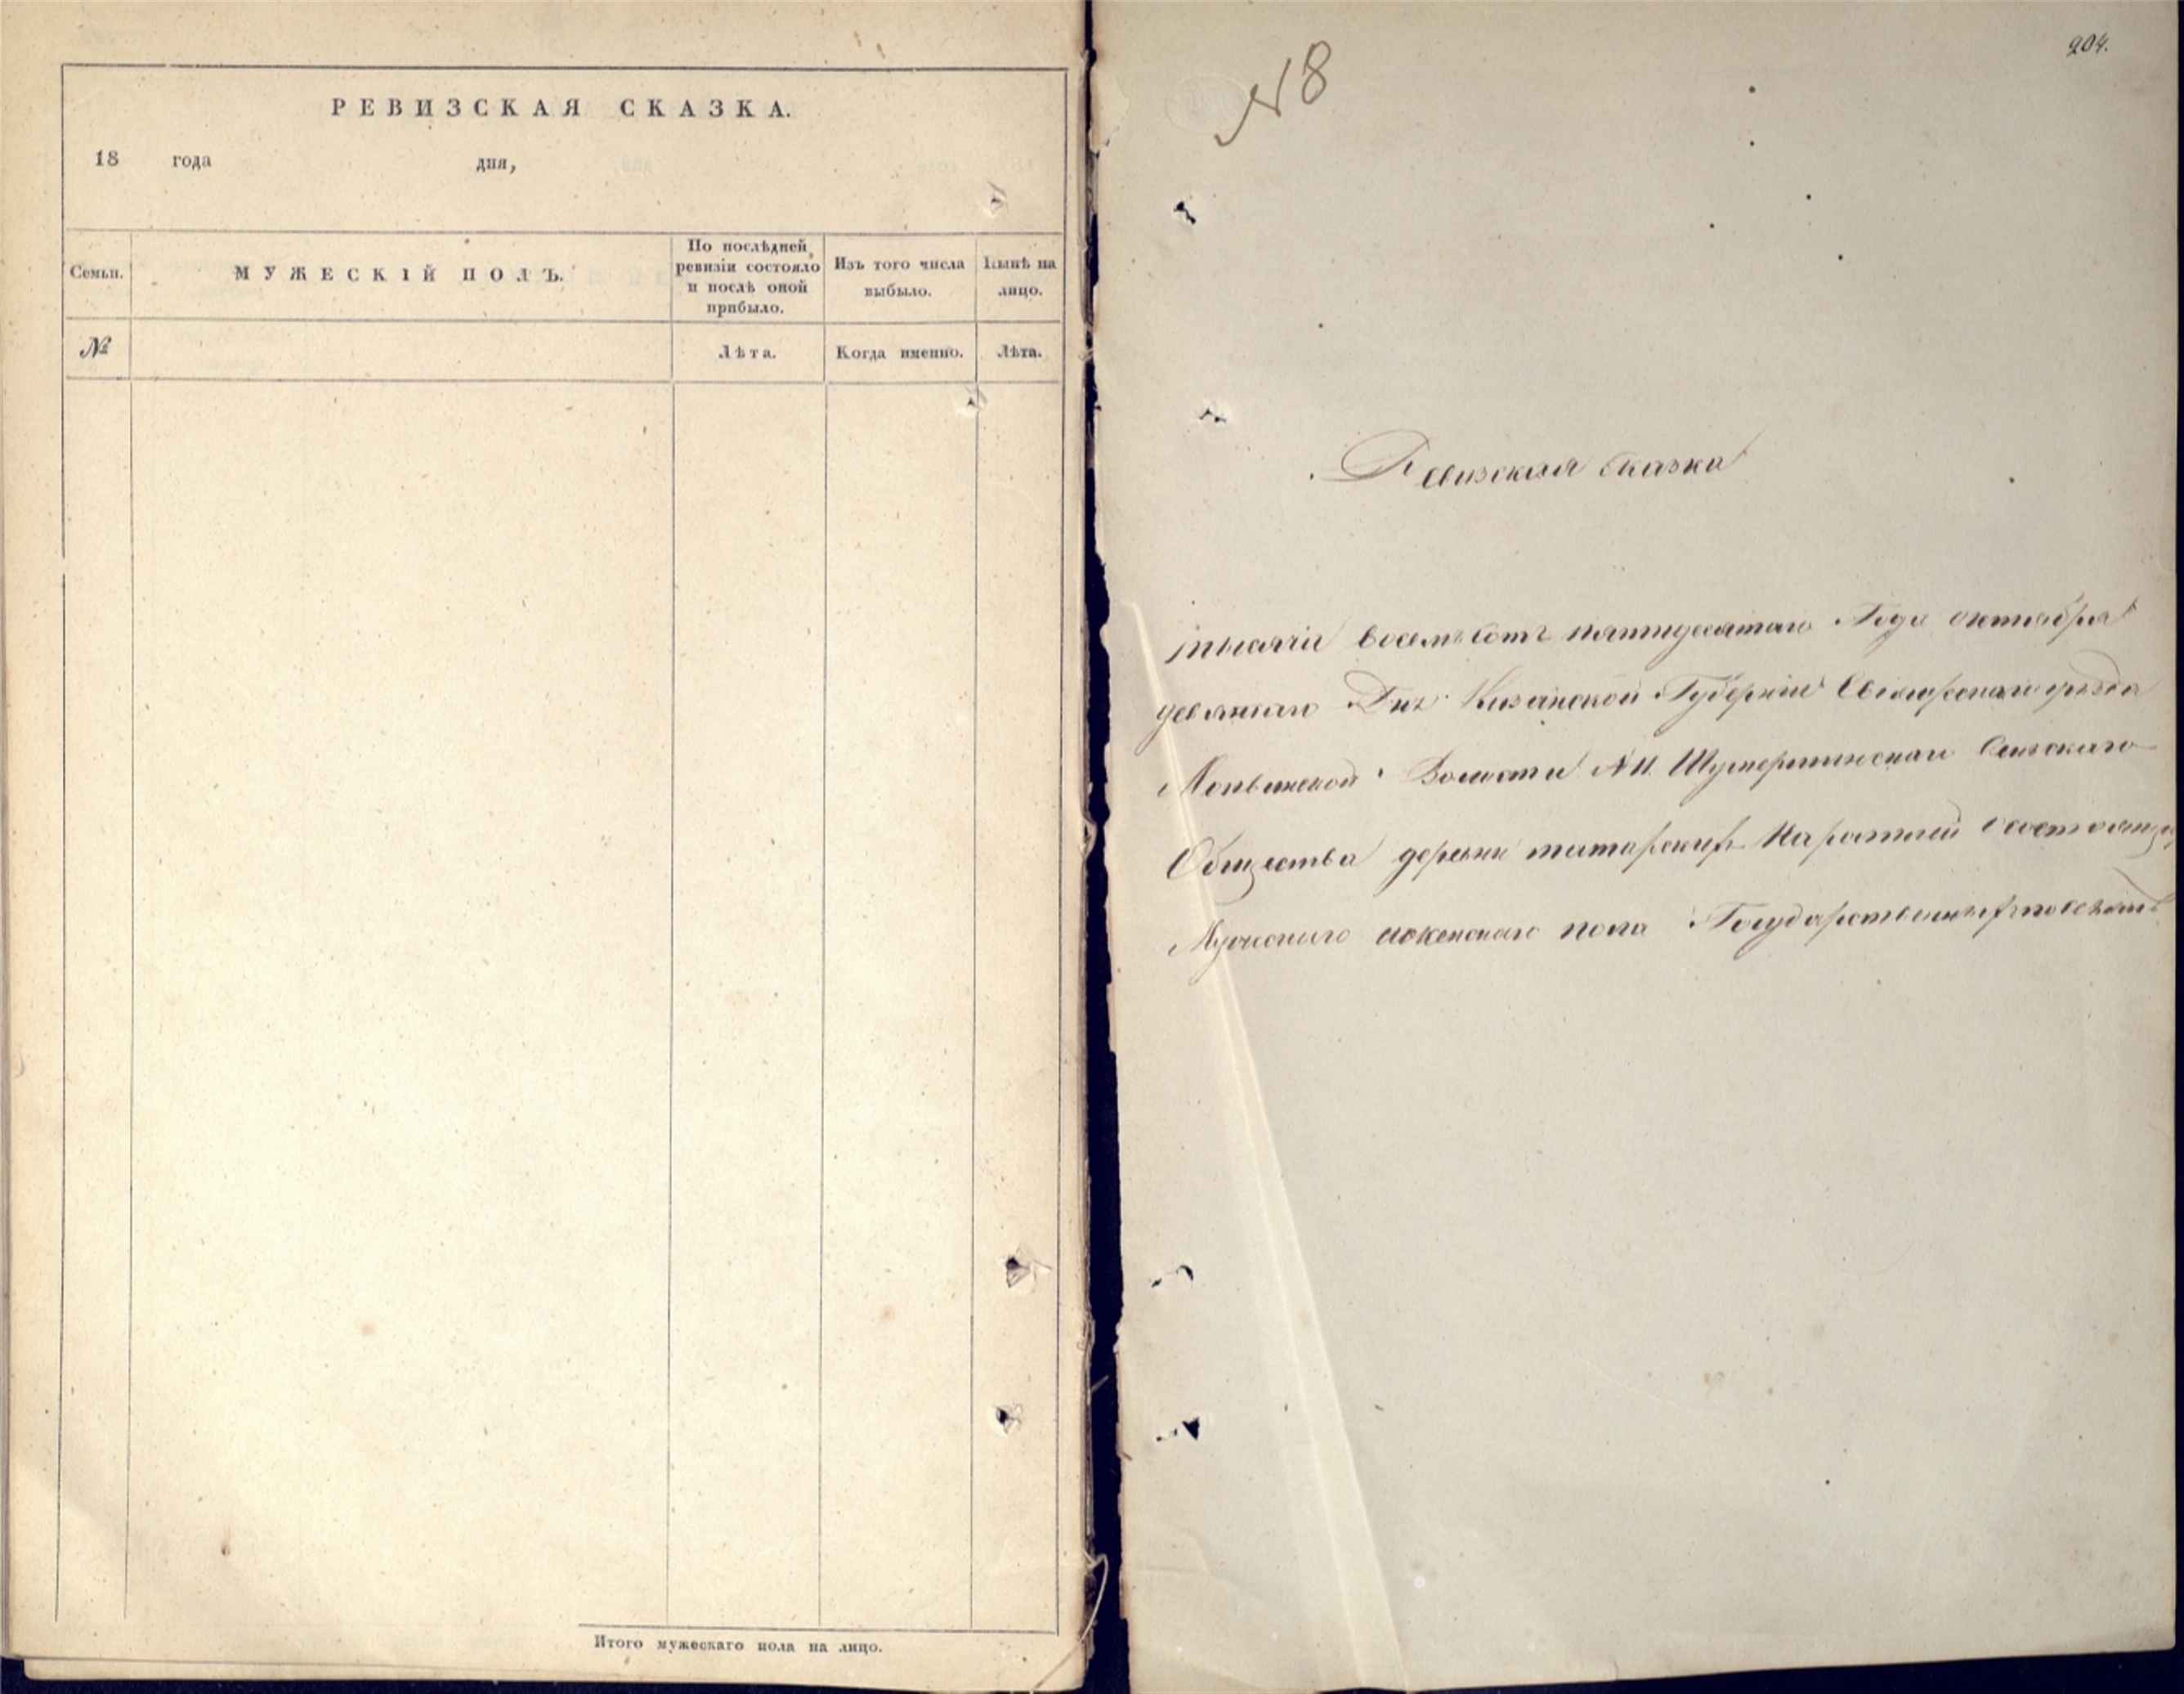 РЕВИЗСКАЯ СКАЗКА.
18 года дня,
Семьи.
МУЖЕСКІЙ ПОЛЪ.
По послѣдней
ревизіи состояло
и послѣ оной
прибыло.
Изъ того числа
выбыло.
Нынѣ на
лицо.
№
Лѣта.
Когда именно.
Лѣта.
Итого мужескаго пола на лицо.
204.
№ 8
Ревизская сказка
тысячи восемьсотъ пятидесятаго Года октября
девятаго Дня Казанской Губерніи Свіяжскаго уѣзда
Волости Сельскаго
Общества деревни татарскихъ состоящих
Мужескаго женскаго пола Государственныхъ